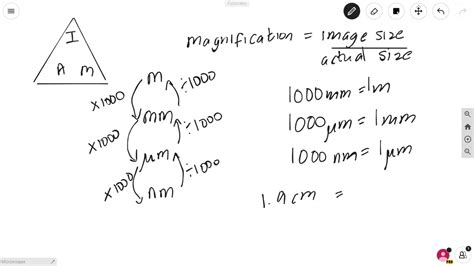 I
A M
magnification = image size
actual size
m
x1000 ÷1000
mm
x1000 ÷1000
μm
x1000 ÷1000
nm
1000mm = 1m
1000μm = 1mm
1000 nm = 1μm
1.9cm =